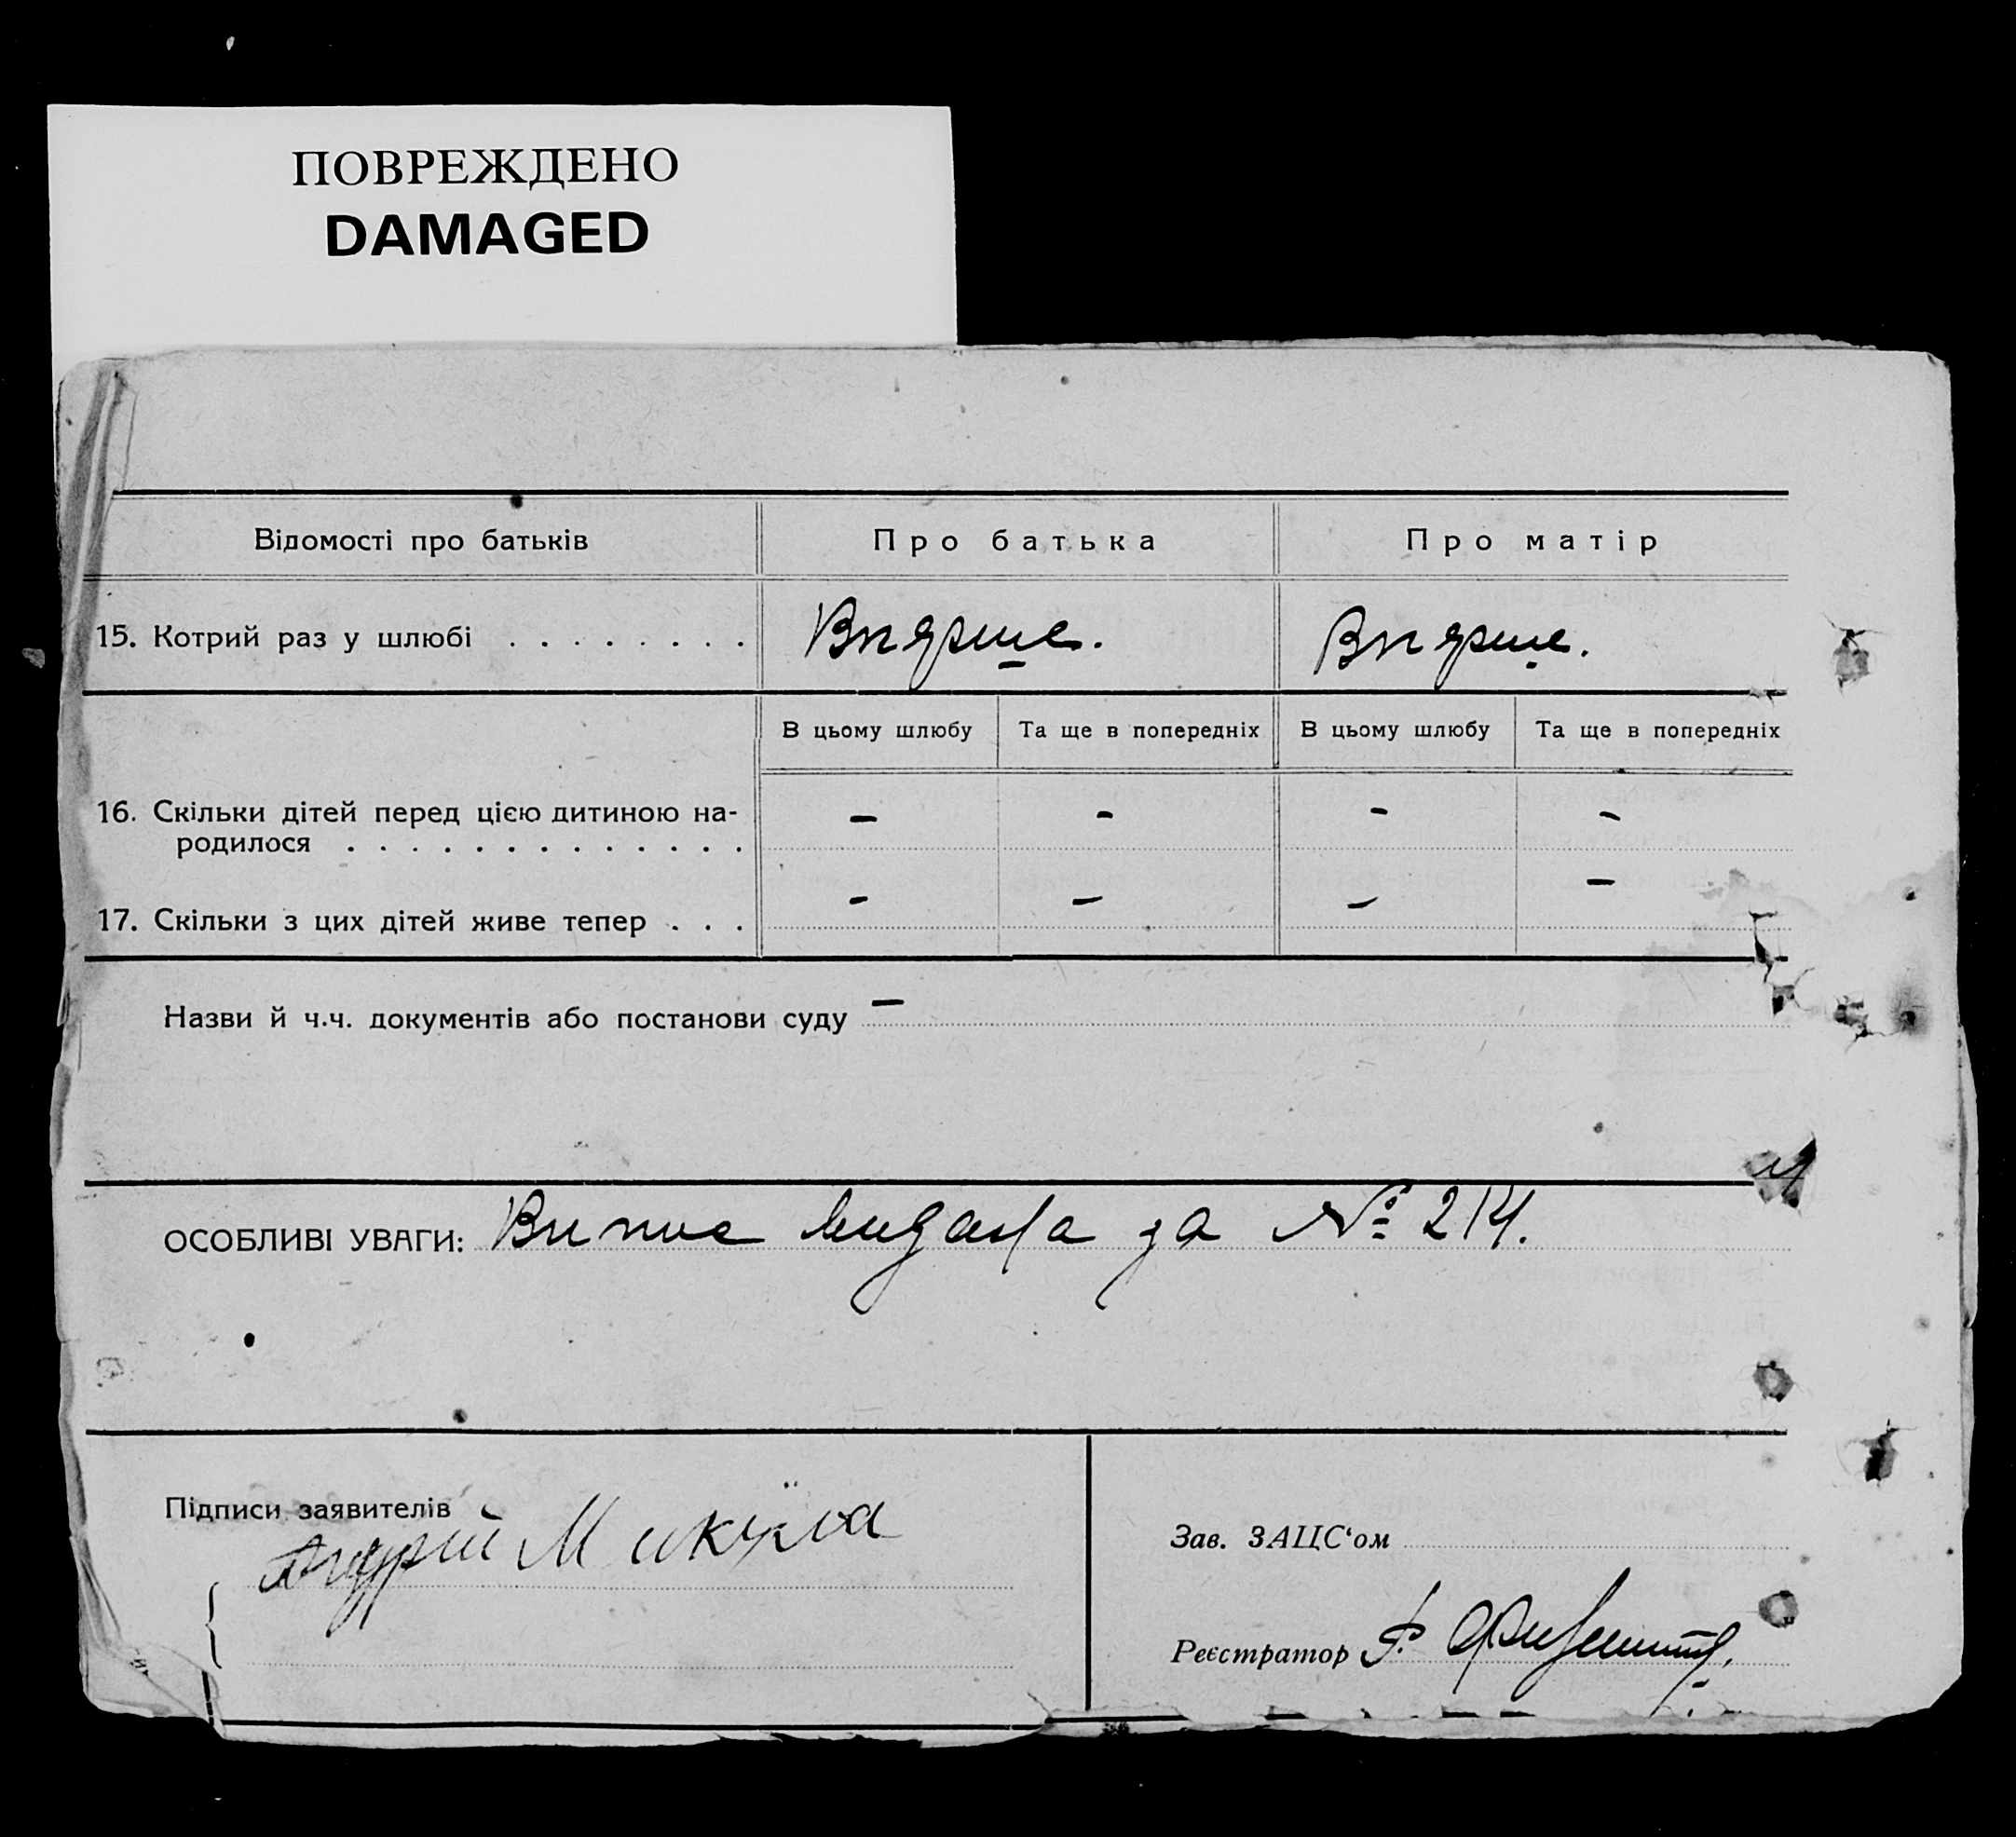 ПОВРЕЖДЕНО
DAMAGED
Відомості про батьків Про батька Про матір
15. Котрий раз у шлюбі . . . . . . . . Вперше. Вперше.
В цьому шлюбу Та ще в попередніх В цьому шлюбу Та ще в попередніх
16. Скільки дітей перед цією дитиною на- – – – –
родилося . . . . . . . . . . . . .
17. Скільки з цих дітей живе тепер . . . – – – –
Назви й ч.ч. документів або постанови суду –
ОСОБЛИВІ УВАГИ: видана за № 214.
Підписи заявителів
Андрій Микула
Зав. ЗАЦС‘ом
Реєстратор